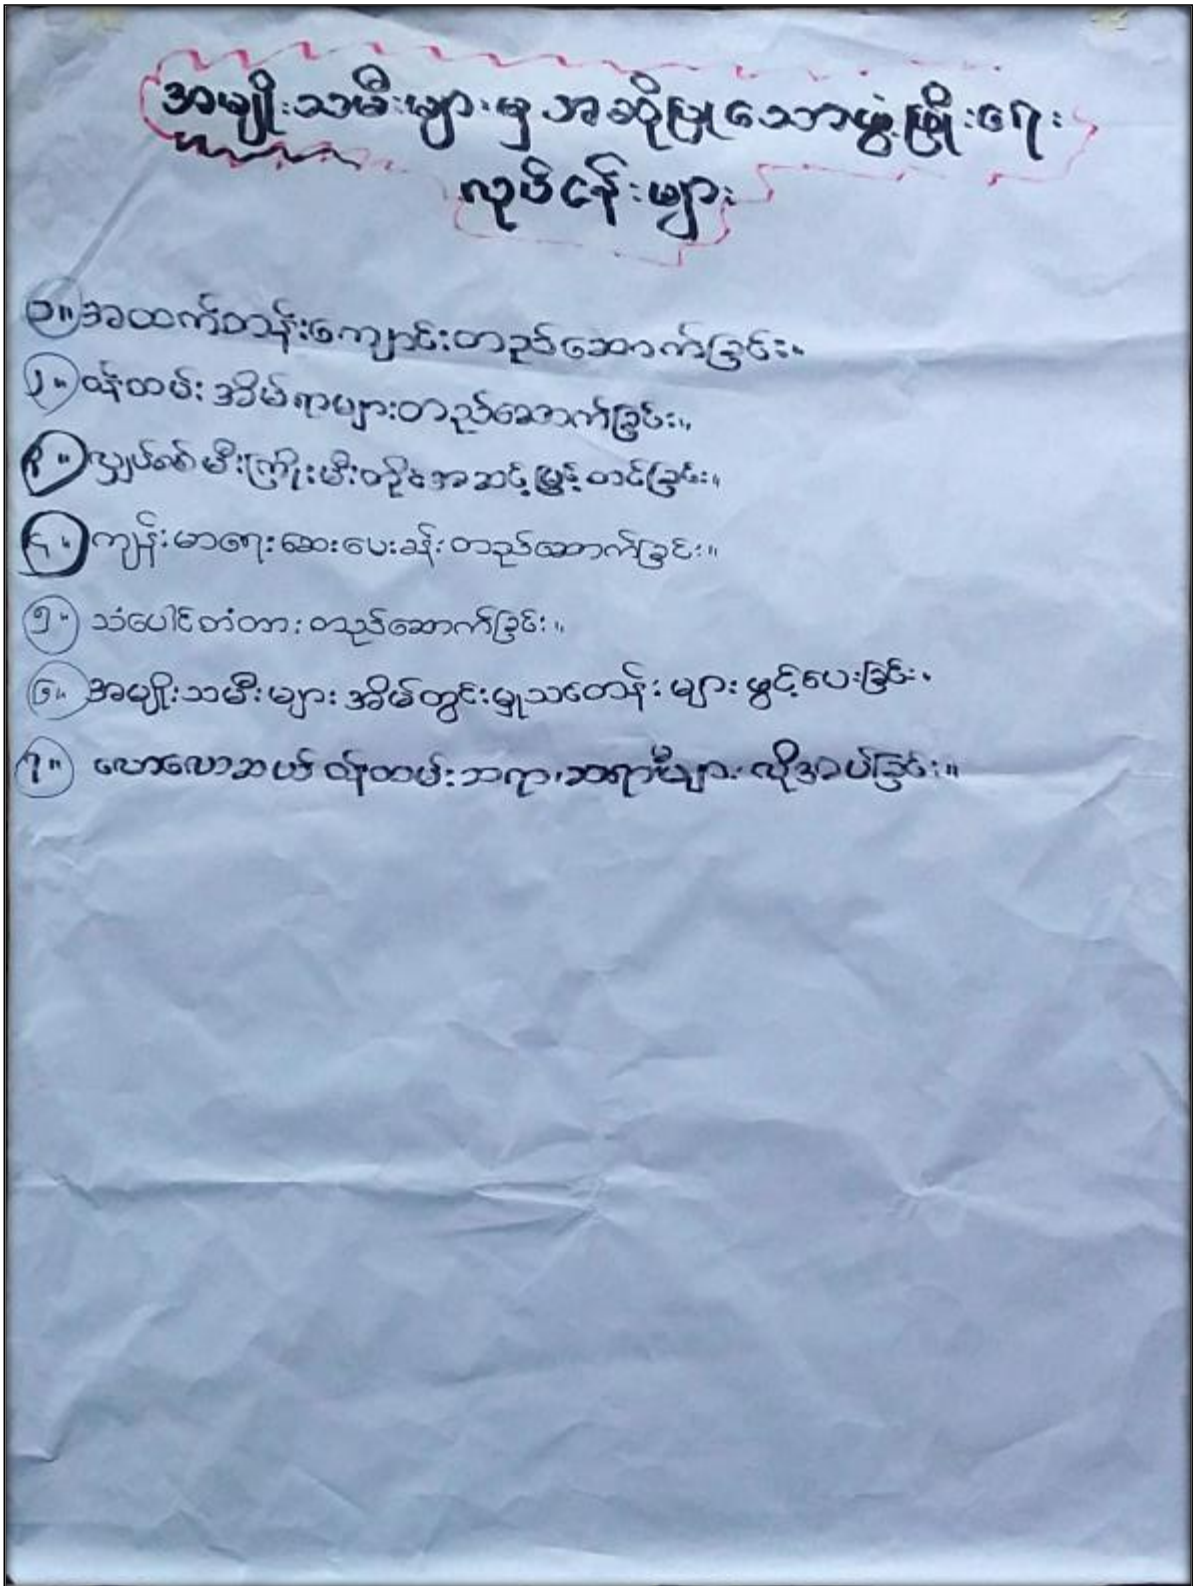 အမျိုးသမီးများမှ အဆိုပြုသောဖွံ့ဖြိုးရေး
လုပ်ငန်းများ
၁။ အထက်တန်းကျောင်းတည်ဆောက်ခြင်း။
၂။ ဝန်ထမ်းအိမ်ရာများတည်ဆောက်ခြင်း။
၃။ လျှပ်စစ်မီးကြိုးမီးတိုင်အဆင့်မြှင့်တင်ခြင်း။
၄။ ကျန်းမာရေးဆေးပေးခန်းတည်ဆောက်ခြင်း။
၅။ သံပေါင်တံတားတည်ဆောက်ခြင်း။
၆။ အမျိုးသမီးများ အိမ်တွင်းမှုသင်တန်းများဖွင့်ပေးခြင်း။
၇။ လောလောဆယ် ဝန်ထမ်းဆရာ၊ဆရာမများ လိုအပ်ခြင်း။